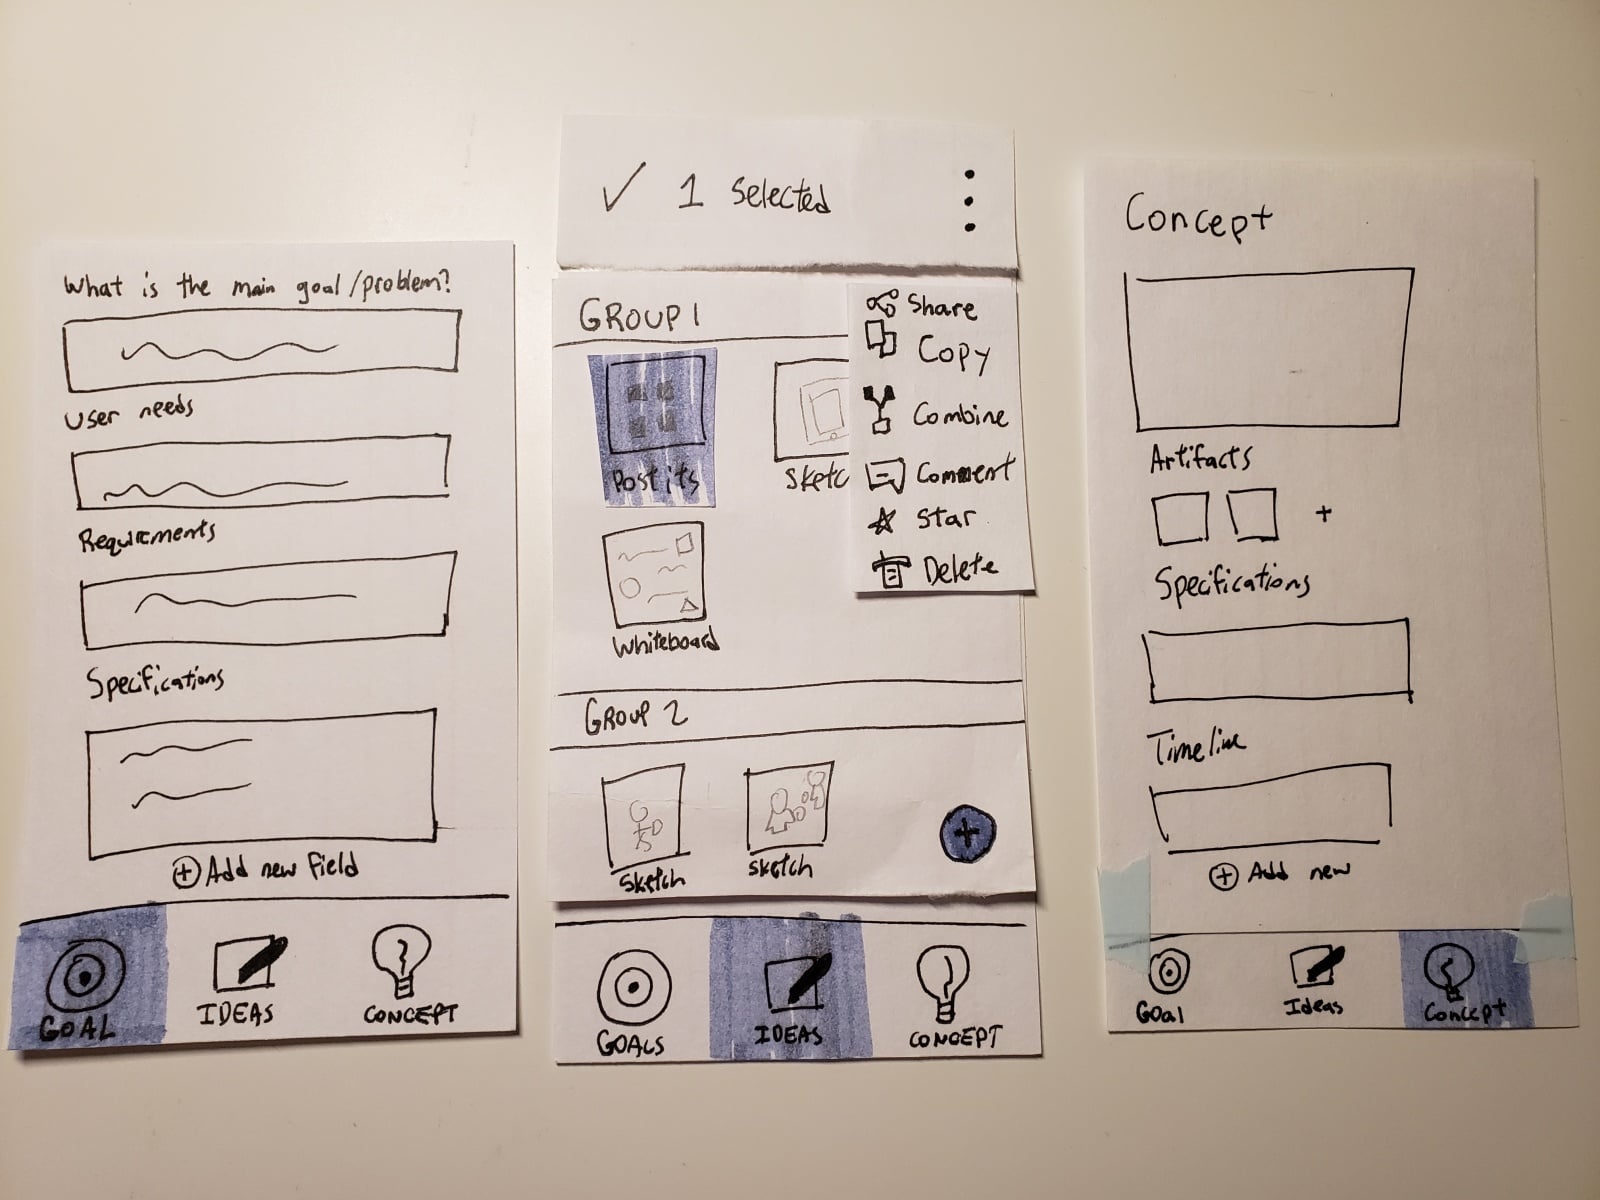 What is the main goal/problem?
User needs
Requirements
Specifications
+ Add new field
GOAL
IDEAS
CONCEPT
✓ 1 Selected
GROUP 1
Post its
Sketc
Whiteboard
Share
Copy
Combine
Comment
Star
Delete
GROUP 2
Sketch
Sketch
+
GOALS
IDEAS
CONCEPT
Concept
Artifacts
+
Specifications
Timeline
+ Add new
Goal
Ideas
Concept